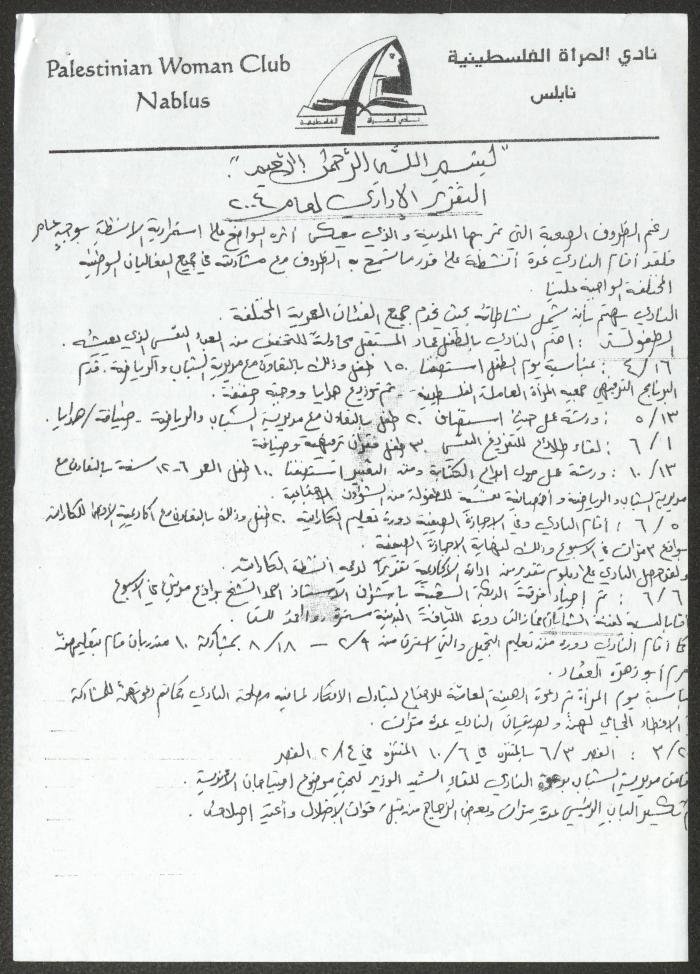 Palestinian Woman Club
Nablus
نادي المرأة الفلسطينية
نابلس
نادي المرأة الفلسطينية
"بسم الله الرحمن الرحيم".
التقرير الإداري لعام ٢٠٠٤
رغم الظروف الصعبة التي تمر بها المدينة والذي يعكس أثره الواضح على استمرارية الأنشطة بوجه عام
فلقد أقام النادي عدة أنشطة على قدر ما تسمح به الظروف مع مشاركته في جميع الفعاليات الوطنية
المختلفة الواجبة علينا.
النادي يهتم بأن تشمل نشاطاته بحيث يخدم جميع الفئات العمرية المختلفة.
الطفولة: اهتم النادي بالطفل عماد المستقبل محاولة للتخفيف من العبء النفسي الذي يعيشه.
٤/١٦ : بمناسبة يوم الطفل استضفنا ١٥٠ طفل وذلك بالتعاون مع مديرية الشباب والرياضة. قدم
البرنامج الترفيهي جمعية المرأة العاملة الفلسطينية - تم توزيع هدايا ووجبة خفيفة.
٥/١٣ : ورشة عمل حيث استضاف ٢٠ طفل بالتعاون مع مديرية الشباب والرياضة - ضيافة/هدايا.
٦/١ : لقاء طلائع للتفريغ النفسي ٣٠ طفل فقرات ترفيهية وضيافة
١٠/١٣ : ورشة عمل حول إبداع الكتابة وفن التعبير استضفنا ١٠٠ طفل العمر ٦-١٢ سنة بالتعاون مع
مديرية الشباب والرياضة وأخصائية نفسية للطفولة من الشؤون الاجتماعية.
٦/٥ : أقام النادي وفي الإجازة الصيفية دورة تعليم الكاراتيه ٢٠ طفل وذلك بالتعاون مع أكاديمية الأقصى للكاراتيه
بواقع ٣ مرات في الأسبوع وذلك لنهاية الإجازة الصيفية.
ولقد حصل النادي على دبلوم تقدير من إدارة الأكاديمية تقديرا لدعم أنشطة الكاراتيه.
٦/٦ : تم إحياء فرقة الدبكة الشعبية بإشراف الأستاذ أحمد الشيخ بواقع مرتين في الأسبوع
أما بالنسبة لفئة الشابات فما زالت دورة اللياقة البدنية مستمرة
كما أقام النادي دورة فن تعليم التجميل والتي استمرت من ٢/٩ – ٨/١٨ بمشاركة ١٠ متدربات قام بتعليمهن
أبو زهرة العقاد.
بمناسبة يوم المرأة تم دعوة الهيئة العامة للاجتماع لتبادل الأفكار لما فيه مصلحة النادي كما تم دعوتهن للمشاركة
الإفطار الجماعي لهن ولصديقات النادي عدة مرات.
٣/٢ : القصر ٦/٣ بالمنتزه في ١٠/٦ المنتزه في ٢/٤ القصر
مديرية الشباب بدعوة النادي للقاء السيد الوزير لبحث موضوع احتياجات الأندية.
تكسير الباب الرئيسي عدة مرات وبعض الزجاج من قبل قوات الاحتلال وأعيد إصلاحه.